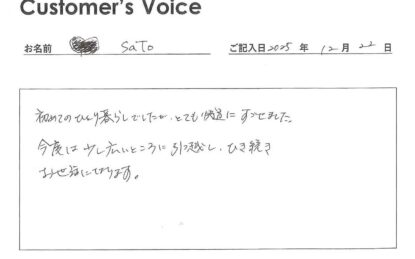 Customer's Voice
お名前 SaTo ご記入日 2025 年 12 月 22 日
初めてのひとり暮らしでしたが、とても快適にすごせました。
今度は少し広いところに引越し、ひき続き
お世話になります。